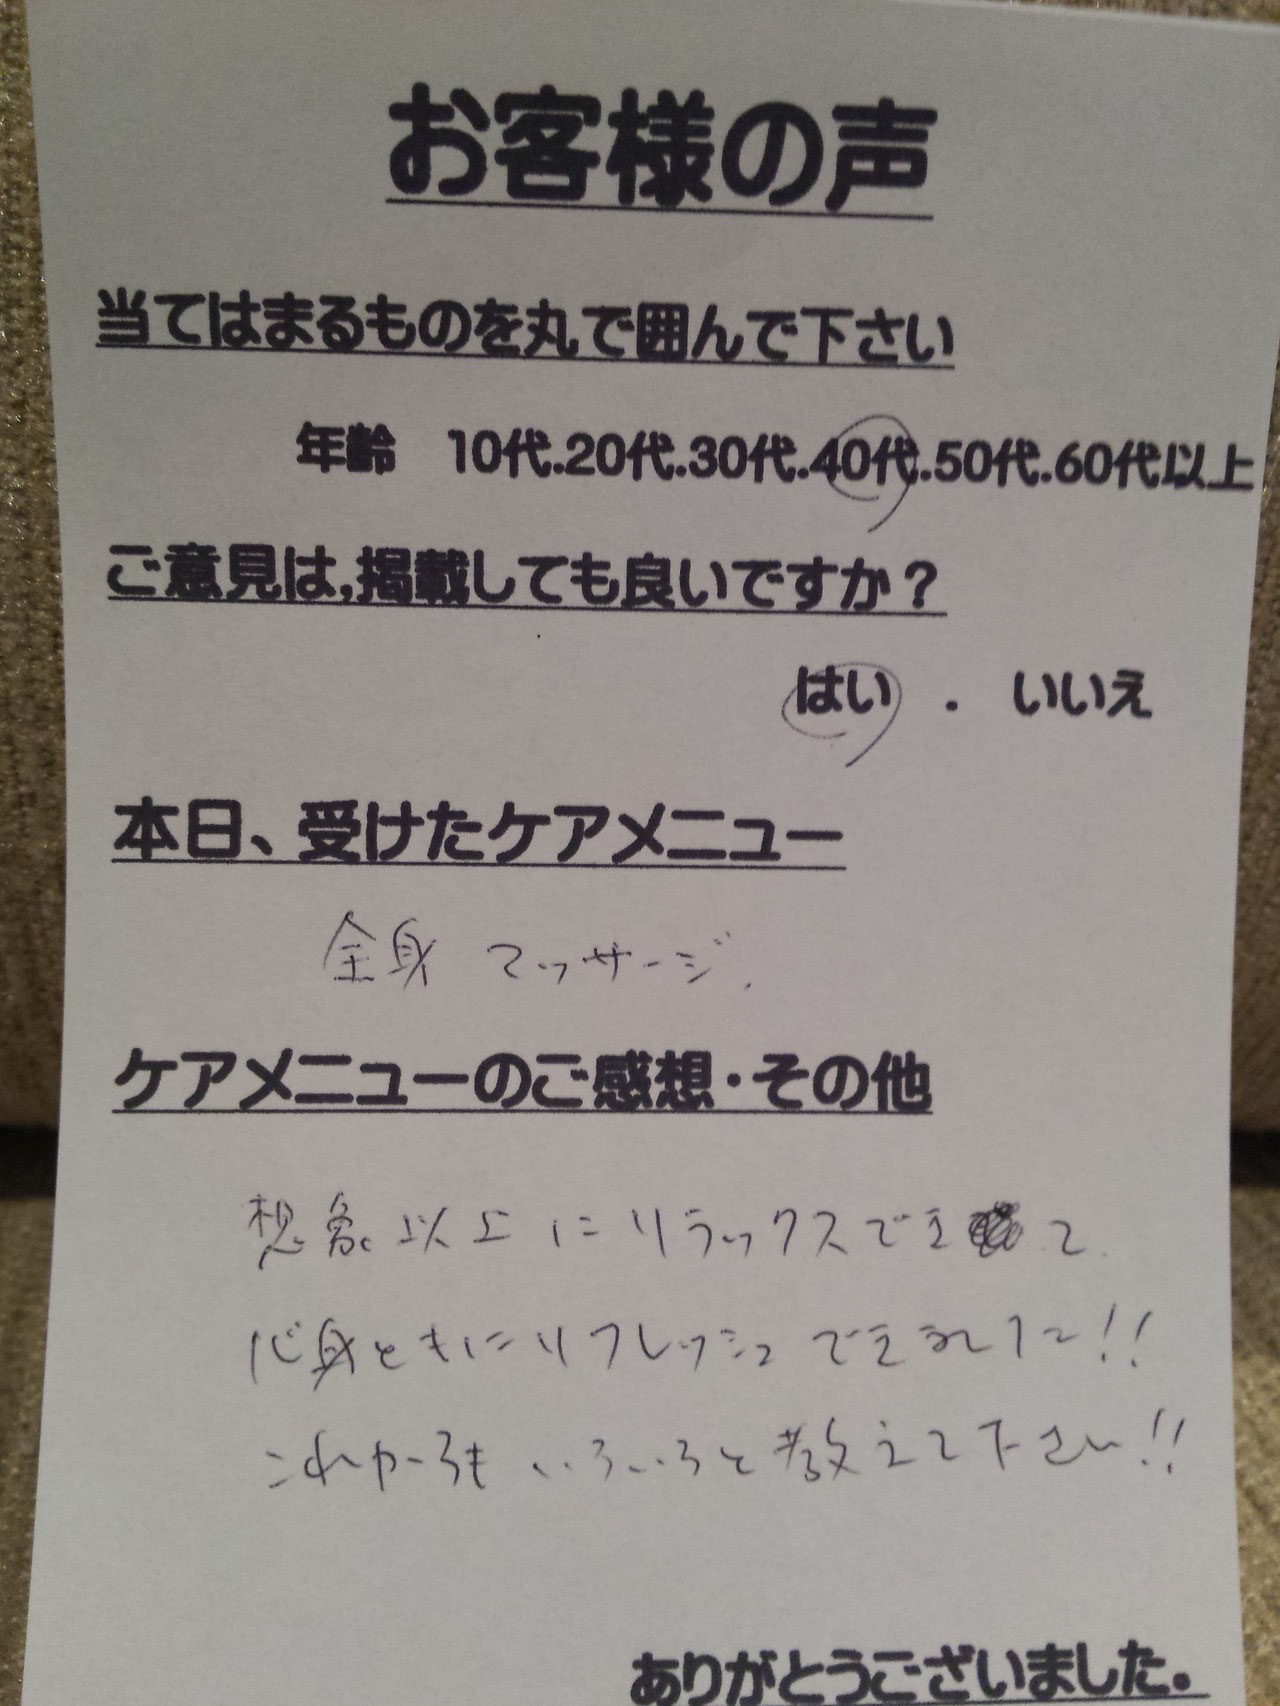 お客様の声
当てはまるものを丸で囲んで下さい
年齢　10代.20代.30代.40代.50代.60代以上
ご意見は,掲載しても良いですか？
はい . いいえ
本日、受けたケアメニュー
全身 マッサージ.
ケアメニューのご感想・その他
想象以上にリラックスできて
心身ともにリフレッシュできました!!
これからもいろいろと教えて下さい!!
ありがとうございました。